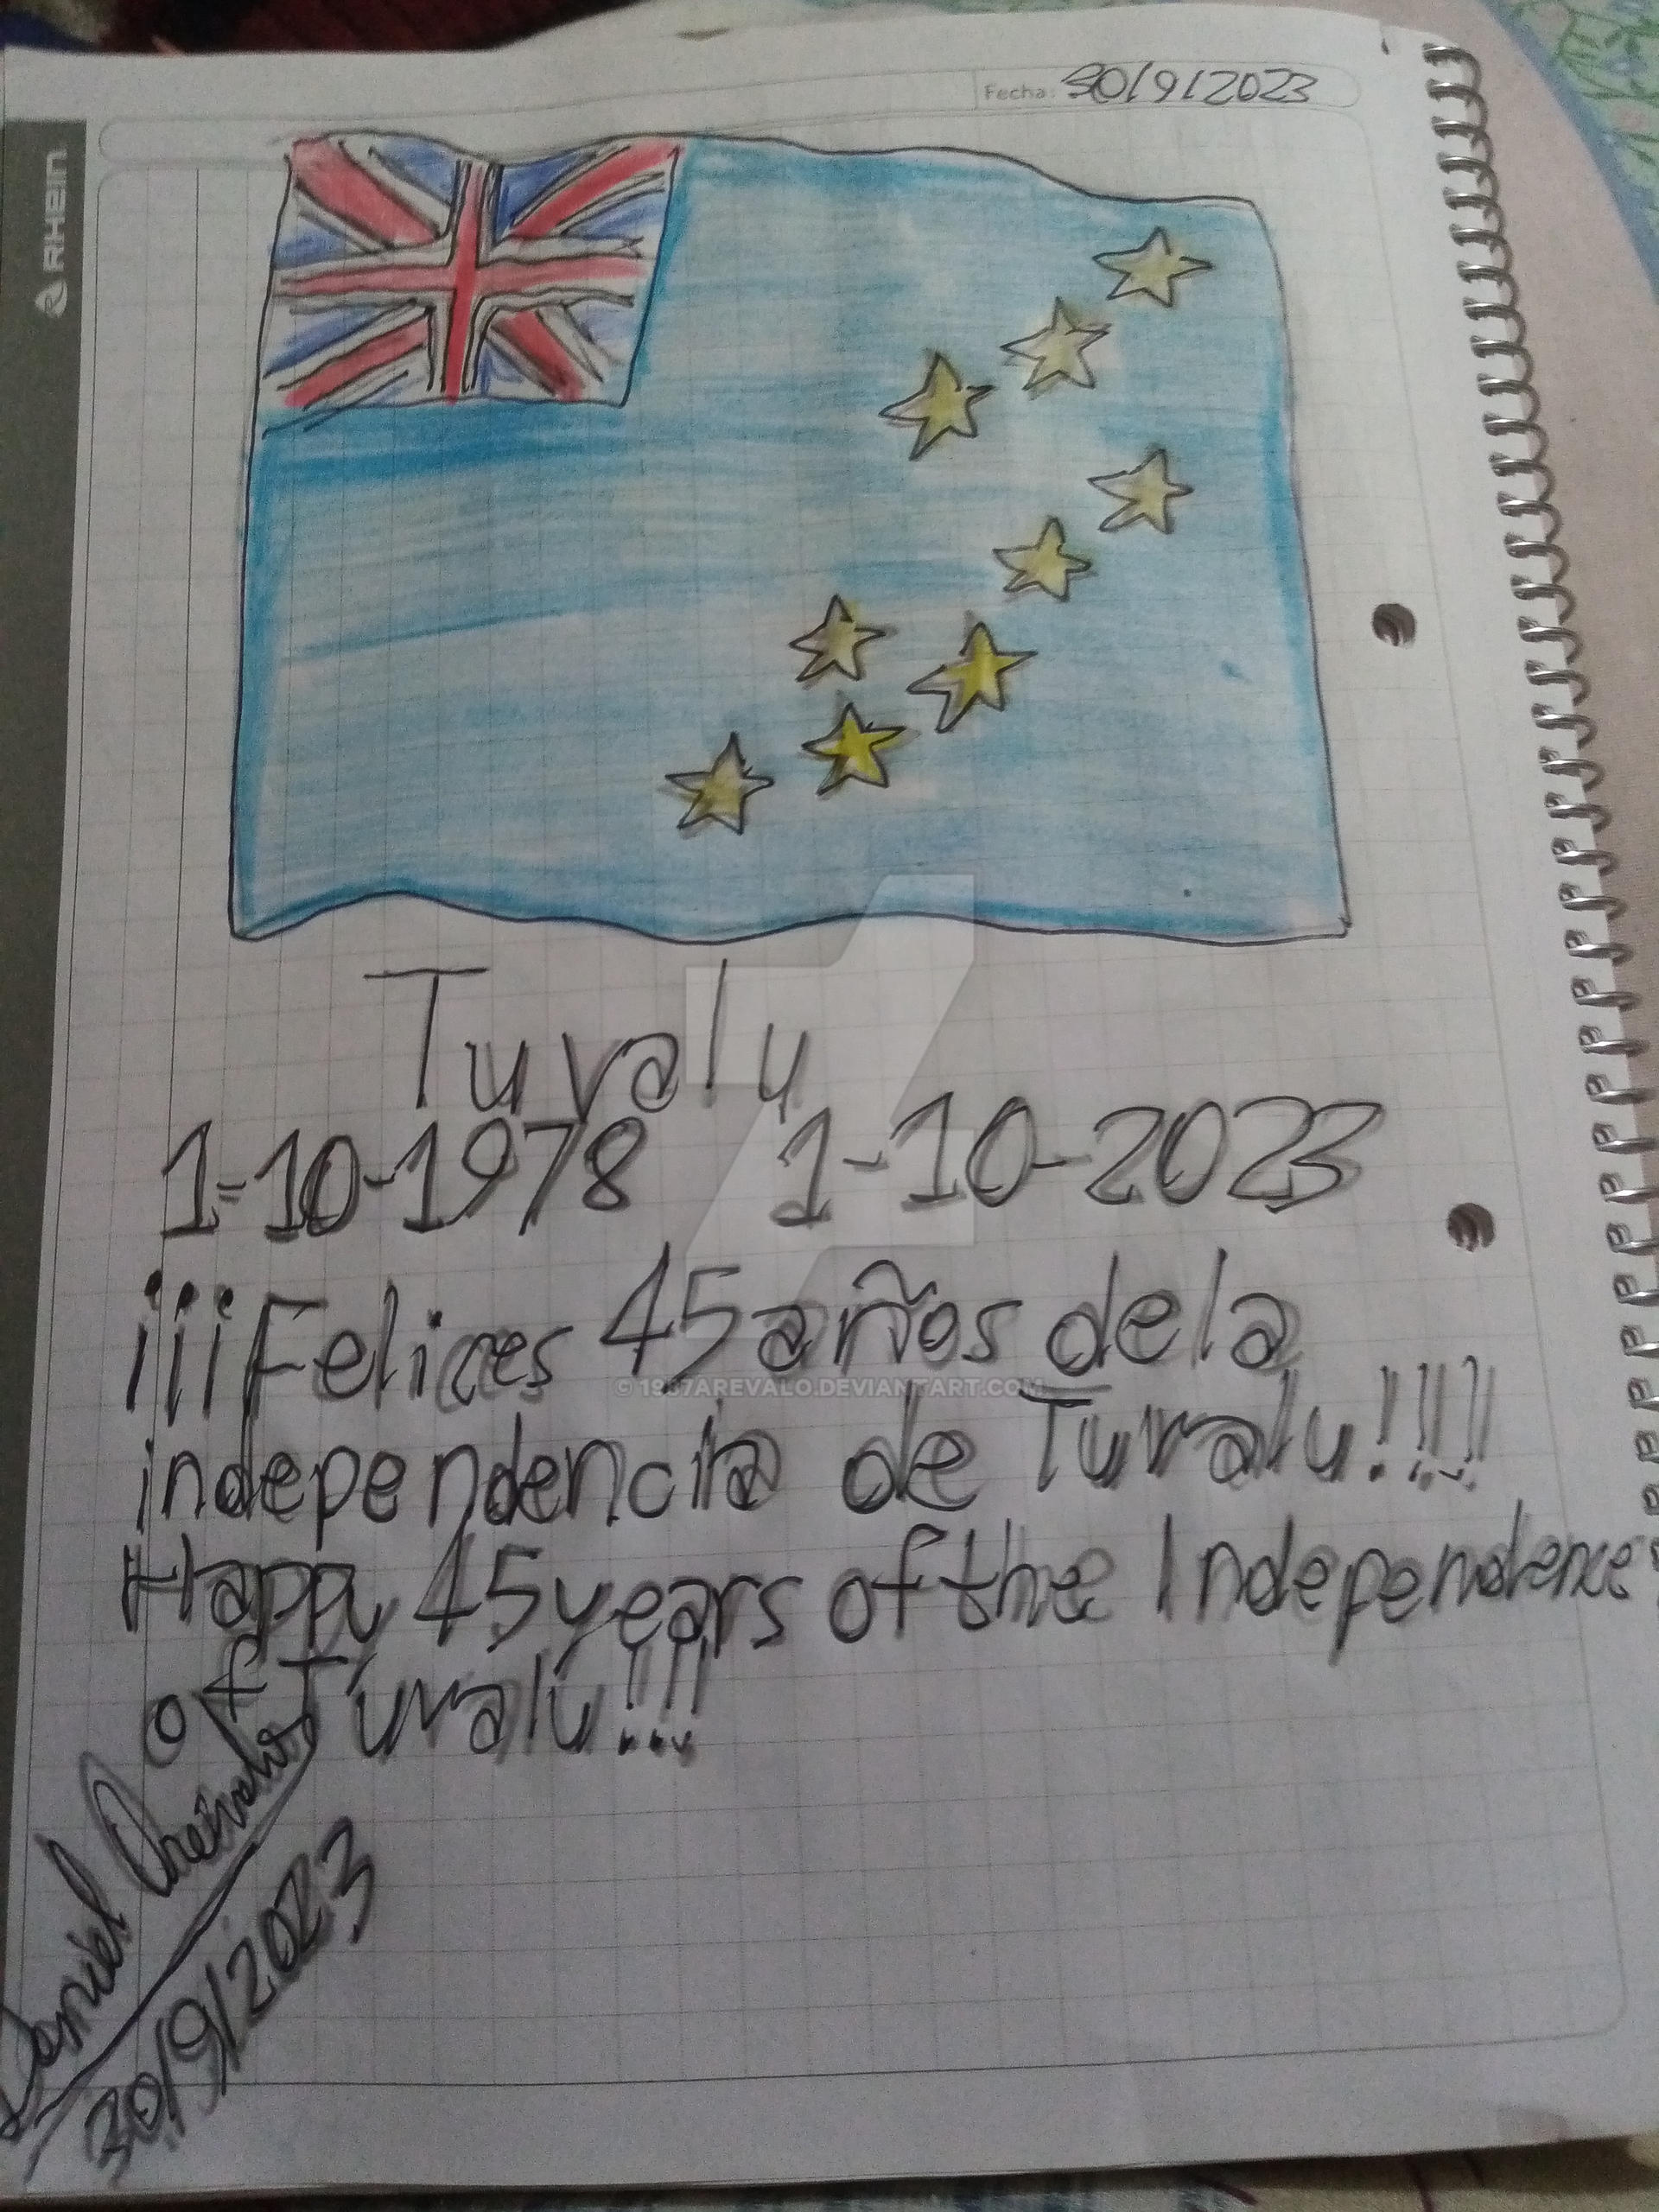 Fecha: 30/9/2023
RHEIN
Tuvalu
1-10-1978 1-10-2023
¡¡¡Felices 45 años de la
© 1987AREVALO.DEVIANTART.COM
independencia de Tuvalu!!!!
Happy 45 years of the Independence
of Tuvalu!!!
Daniel Arévalo
30/9/2023